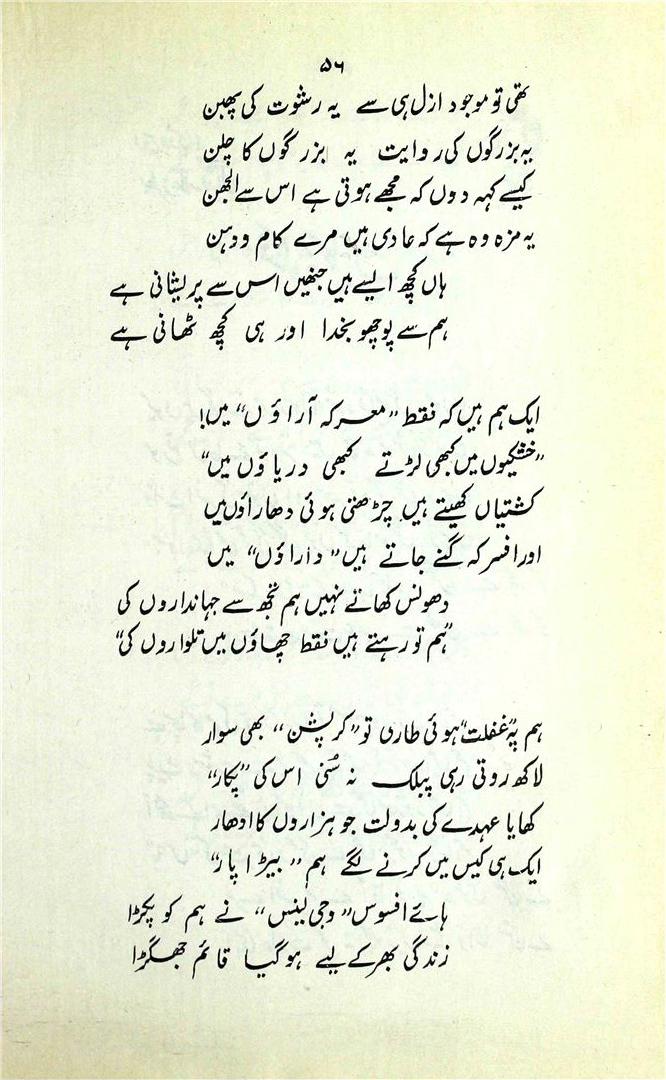 ۵۶
تھی تو موجود ازل ہی سے یہ رشوت کی پھبن
یہ بزرگوں کی روایت یہ بزرگوں کا چلن
کیسے کہہ دوں کہ مجھے ہوتی ہے اس سے الجھن
یہ مزہ وہ ہے کہ عادی ہیں مرے کام و دہن
ہاں کچھ ایسے ہیں جنھیں اس سے پریشانی ہے
ہم سے پوچھو بخدا اور ہی کچھ ٹھانی ہے
ایک ہم ہیں کہ فقط "معرکہ آراؤں" میں!
"خشکیوں میں کبھی لڑتے کبھی دریاؤں میں"
کشتیاں کھیتے ہیں چڑھتی ہوئی دھاراؤں میں
اور افسر کہ گنے جاتے ہیں "داراؤں" میں
دھونس کھاتے نہیں ہم تجھ سے جہانداروں کی
"ہم تو رہتے ہیں فقط چھاؤں میں تلواروں کی"
ہم پہ "غفلت" ہوئی طاری تو "کرپشن" بھی سوار
لاکھ روتی رہی پبلک نہ سُنی اس کی "پکار"
کھایا عہدے کی بدولت جو ہزاروں کا ادھار
ایک ہی کیس میں کرنے لگے ہم "بیڑا پار"
ہائے افسوس "وجی لینس" نے ہم کو پکڑا
زندگی بھر کے لیے ہو گیا قائم جھگڑا